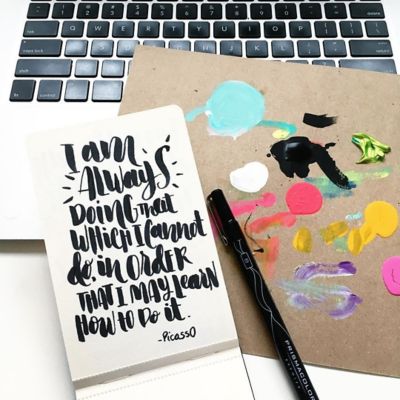 I am
ALWAYS
DOING that
WHICH I CANNOT
do, in ORDER
THAT I MAY LEARN
HOW TO DO IT.
-PICASSO
PRISMACOLOR